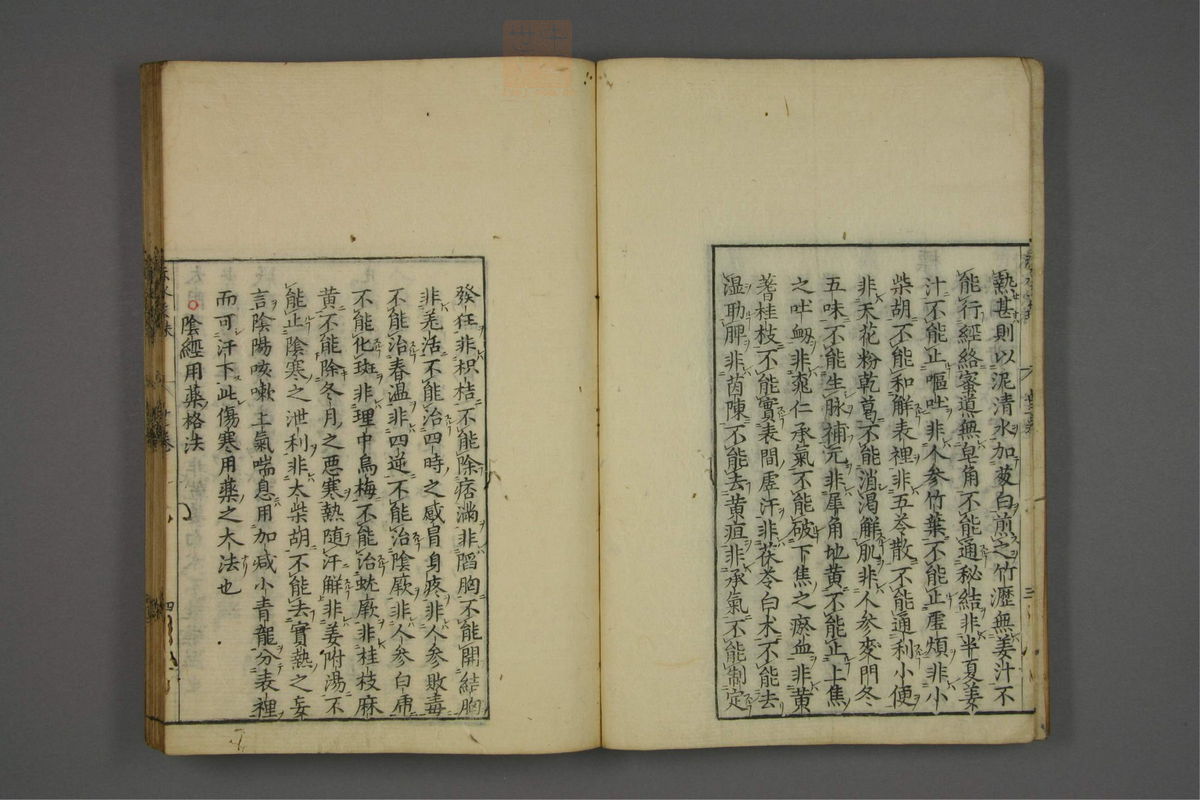 熱甚則以泥清水加葱白煎之竹瀝無姜汁不
能行經絡蜜導無皂角不能通秘結非半夏姜
汁不能止嘔吐非人参竹葉不能止虚煩非小
柴胡不能和解表裡非五苓散不能通利小便
非天花粉乾葛不能消渴解肌非人参麥門冬
五味不能生脉補元非犀角地黄不能止上焦
之吐衂非桃仁承氣不能破下焦之瘀血非黄
蓍桂枝不能實表間虚汗非茯苓白术不能去
湿助脾非茵陳不能去黄疸非承氣不能制定
發狂非枳桔不能除痞満非陷胸不能開結胸
非羌活不能治四時之感冒身疼非人参敗毒
不能治春温非四逆不能治陰厥非人参白虎
不能化斑非理中烏梅不能治蚘厥非桂枝麻
黄不能除冬月之悪寒熱随汗解非姜附湯不
能止陰寒之泄利非大柴胡不能去實熱之妄
言陰陽咳嗽上氣喘息用加减小青龍分表裡
而可汗下此傷寒用藥之大法也
陰經用藥格法